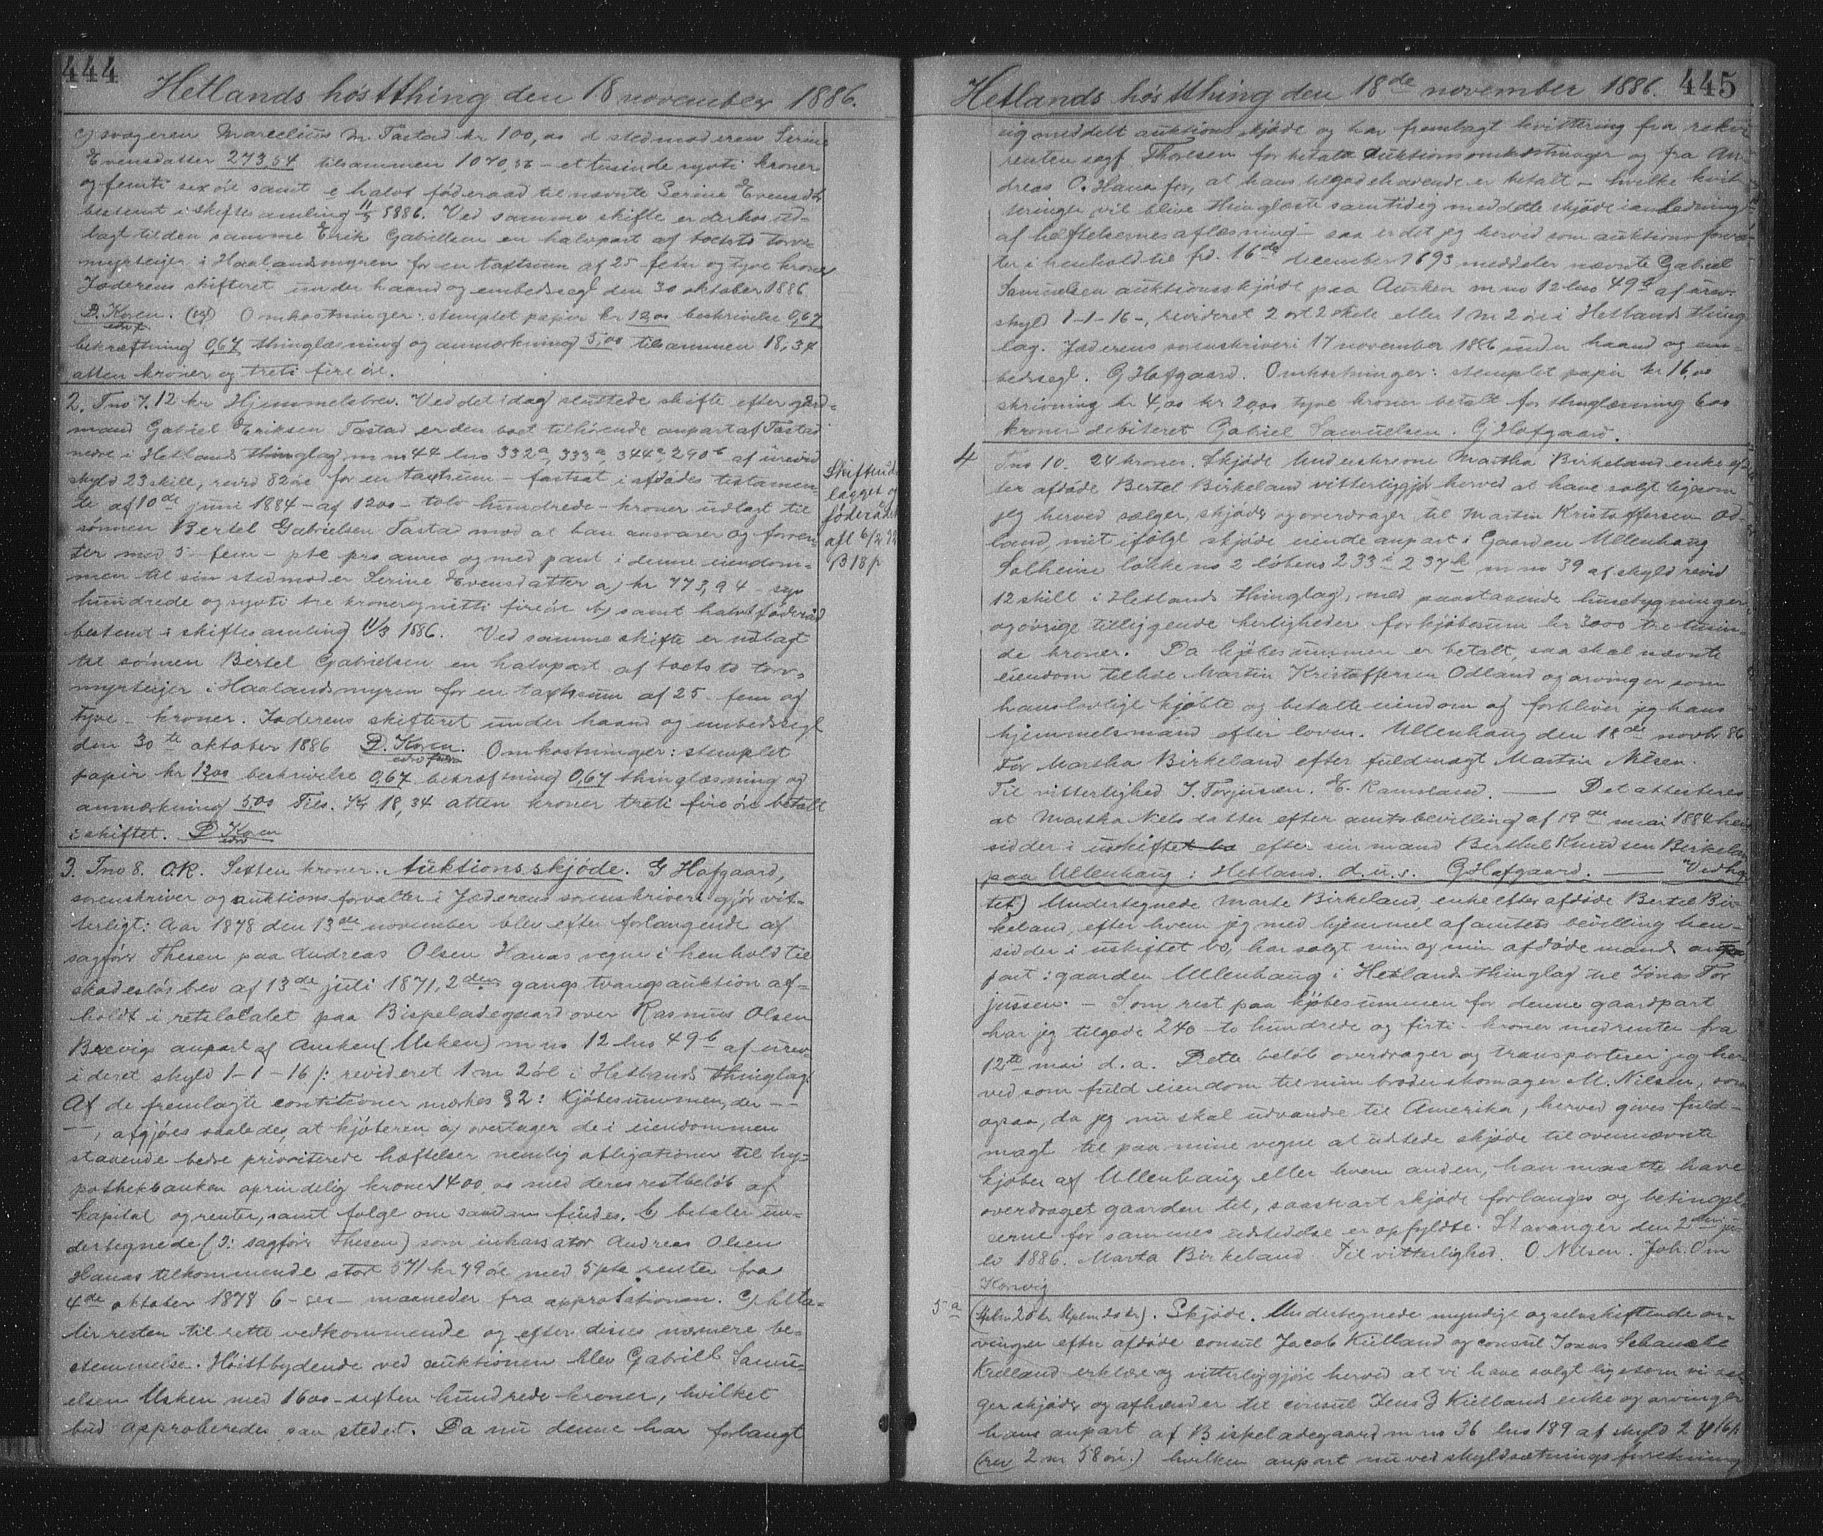 444
Hetlands høstthing den 18 november 1886.
c) svogeren Marcelius M. Tastad kr 100,00 d stedmoderen Serine
Evensdatter 273,54 tilsammen 1070,56 - et tusinde sytti kroner
og femti sex øre samt e halvt føderaad til nævnte Serine Evensdtr
bestemt i skiftesamling 11/3 1886. Ved samme skifte er derhos ud-
lagt til den samme Erik Gabrielsen en halvpart af boets to torv-
myrteiger i Haalandsmyren for en taxtsum af 25 fem og tyve kroner
Jæderens skifteret under haand og embedssegl den 30 oktober 1886
P. Koren. Omkostninger: stemplet papir kr 12,00 beskrivelse 0,67
bekræftning 0,67 thinglæsning og anmærkning 5,00 tilsammen 18,34
atten kroner og treti fire øre.
2. Tno 7. 12 kr Hjemmelsbrev. Ved det idag sluttede skifte efter gård-
mand Gabriel Eriksen Tastad er den boet tilhørende anpart af Tastad
nedre i Hetlands thinglag, m no 44 lno 332a, 333a, 344a 290b af urevid
skyld 23 skill, revid 82 øre for en taxtsum - fastsat i afdødes testamen-
te af 10de juni 1884 - af 1200 - tolv hundrede - kroner udlagt til
sønnen Bertel Gabrielsen Tasta mod at han ansvarer og forren-
ter med 5 - fem - pct pro anno og med pant i denne eiendom-
men til sin stedmoder Serine Evensdatter a) kr 773,94 - syv
hundrede og sytti tre kroner og nitti fire øre b) samt halvt føderåd
bestemt i skiftesamling 11/3 1886. Ved samme skifte er udlagt
til sønnen Bertel Gabrielsen en halvpart af boets to torv-
myrteiger i Haalandsmyren for en taxtsum af 25 - fem og
tyve - kroner. Jæderens skifteret under haand og embedssegl
den 30te oktober 1886 P. Koren. Omkostninger: stemplet
papir kr 12,00 beskrivelse 0,67 bekræftning 0,67 thinglæsning og
anmærkning 5,00 Tils. kr 18,34 atten kroner treti fire øre betalt
i skiftet. P. Koren
Skifteud-
lægget og
føderådet
afl 6/2 92
B 18 p
3. Tno 8. OR. Sexten kroner. Auktionsskjøde. G Hofgaard,
sorenskriver og auktionsforvalter i Jæderens sorenskriveri gjør vit-
terligt: Aar 1878 den 13de november blev efter forlangende af
sagfører Thesen paa Andreas Olsen Hanas vegne i henhold til
skadesløsbrev af 13de juli 1871, 2den gangs tvangsauktion af-
holdt i retslocalet paa Bispeladegaard over Rasmus Olsen
Brevigs anpart af Ausken (Usken) m no 12 lno 49b af urev-
ideret skyld 1-1-16 /: revideret 1 m 2 øl i Hetlands thinglag.
Af de fremlagte conditioner mærkes § 2: Kjøbesummen, der - -
- -, afgjøres saaledes, at kjøberen a) overtager de i eiendommen
staaende bedre prioriterede hæftelser nemlig obligationer til hy-
pothekbanken oprindelig kroner 1400,00 med deres restbeløb af
kapital og renter, samt følge om saadan findes. b) betaler un-
dertegnede (o: sagfører Thesen) som inkassator Andreas Olsen
Hanas tilkommende stor 571 kr 79 øre med 5 pct renter fra
4de oktober 1878 6 - sex - maaneder fra approbationen. c) beta-
ler resten til rette vedkommende og efter disses nærmere be-
stemmelse. Høistbydende ved auktionen blev Gabriel Samu-
elsen Usken med 1600 - sexten hundrede kroner, hvilket
bud approberedes paa stedet. Da nu denne har forlangt
Hetlands høstthing den 18de november 1886. 445
sig meddelt auktionsskjøde og har fremlagt kvittering fra rekvi-
renten sagf. Thoresen for betalte auktionsomkostninger og fra An-
dreas O. Hana for, at hans tilgodehavende er betalt - hvilke kvit-
teringer vil blive thinglæste samtidig meddelte skjøde i anledning
af hæftelsernes aflæsning - saa er det jeg herved som auktionsforval-
ter i henhold til frd. 16de december 1693 meddeler nævnte Gabriel
Samuelsen auktionsskjøde paa Ausken m no 12 lno 49b af urev.
skyld 1-1-16-, revideret 2 ort 2 skill eller 1 m 2 øre i Hetlands thing
lag. Jæderens sorenskriveri 17 november 1886 under haand og em-
bedssegl. G Hofgaard. Omkostninger: stemplet papir kr 16,00
skrivning kr 4,00 kr 20,00 tyve kroner betalt for thinglæsning 6,00
kroner debiteret Gabriel Samuelsen. G Hofgaard.
4 Tno 10. 24 kroner. Skjøde Underskrevne Martha Birkeland enke ef-
ter afdøde Bertel Birkeland vitterliggjør herved at have solgt ligesom
jeg herved sælger, skjøder og overdrager til Martin Kristoffersen Od-
land mit ifølge skjøde eiende anpart i Gaarden Ullenhaug
Solheim løbe no 2 løbens 233a 237h m no 39 af skyld revid
12 skill i Hetlands thinglag, med paastaaende husebygninger
og øvrige tilliggende herligheder for kjøbesum kr 3000 tre tusin-
de kroner. Da kjøbesummen er betalt, saa skal nævnte
eiendom tilhøre Martin Kristoffersen Odland og arvinger som
hans lovlige kjøbte og betalte eiendom og forbliver jeg hans
hjemmelsmand efter loven. Ullenhaug den 18de novbr 86
For Martha Birkeland efter fuldmagt Martin Nilsen.
Til vitterlighed J. Torjussen. E. Ramsland. — Det attesteres
at Martha Nielsdatter efter amtsbevilling af 19de mai 1884 hen
sidder i uskiftet bo efter sin mand Berthel Knudsen Birkeland
paa Ullenhaug i Hetland. d.u.s. G Hofgaard. — "Vedhæ
tet) Undertegnede Marte Birkeland enke efter afdøde Bertel Bir-
keland, efter hvem jeg med hjemmel af amtets bevilling hen-
sidder i uskiftet bo, har solgt min og min afdøde mands an
part i gaarden Ullenhaug i Hetlands thinglag til Jonas Tor
jussen. - Som rest paa kjøbesummen for denne gaardpart
har jeg tilgode 240 - to hundrede og firti - kroner med renter fra
12te mai d.a. Dette beløb overdrager og transporterer jeg her
ved som fuld eiendom til min broder skomager M. Nilsen, som
ogsaa, da jeg nu skal udvandre til Amerika, herved gives fuld-
magt til paa mine vegne at udstede skjøde til ovennævnte
kjøber af Ullenhaug eller hvem anden, han maatte have
overdraget gaarden til, saasnart skjøde forlanges og betingel-
serne for sammes udstedelse er opfyldte. Stavanger den 2den ju-
li 1886. Marta Birkeland Til vitterlighed. O Nilsen. Joh. Om
Korvig
5a (Stplm 20 kr Stplm 20 kr). Skjøde. Undertegnede myndige og selvskiftende ar-
vinger efter afdøde consul Jacob Kielland og consul Jonas Schanche
Kielland erklære og vitterliggjøre herved at vi have solgt ligesom vi sæl
ger skjøder og afhænder til consul Jens Z Kiellands enke og arvinger
hans anpart af Bispeladegaard m no 36 lno 189 af skyld 2 16
(rev 2 m 58 øre.) hvilken anpart nu ved skyldsætningsforretning